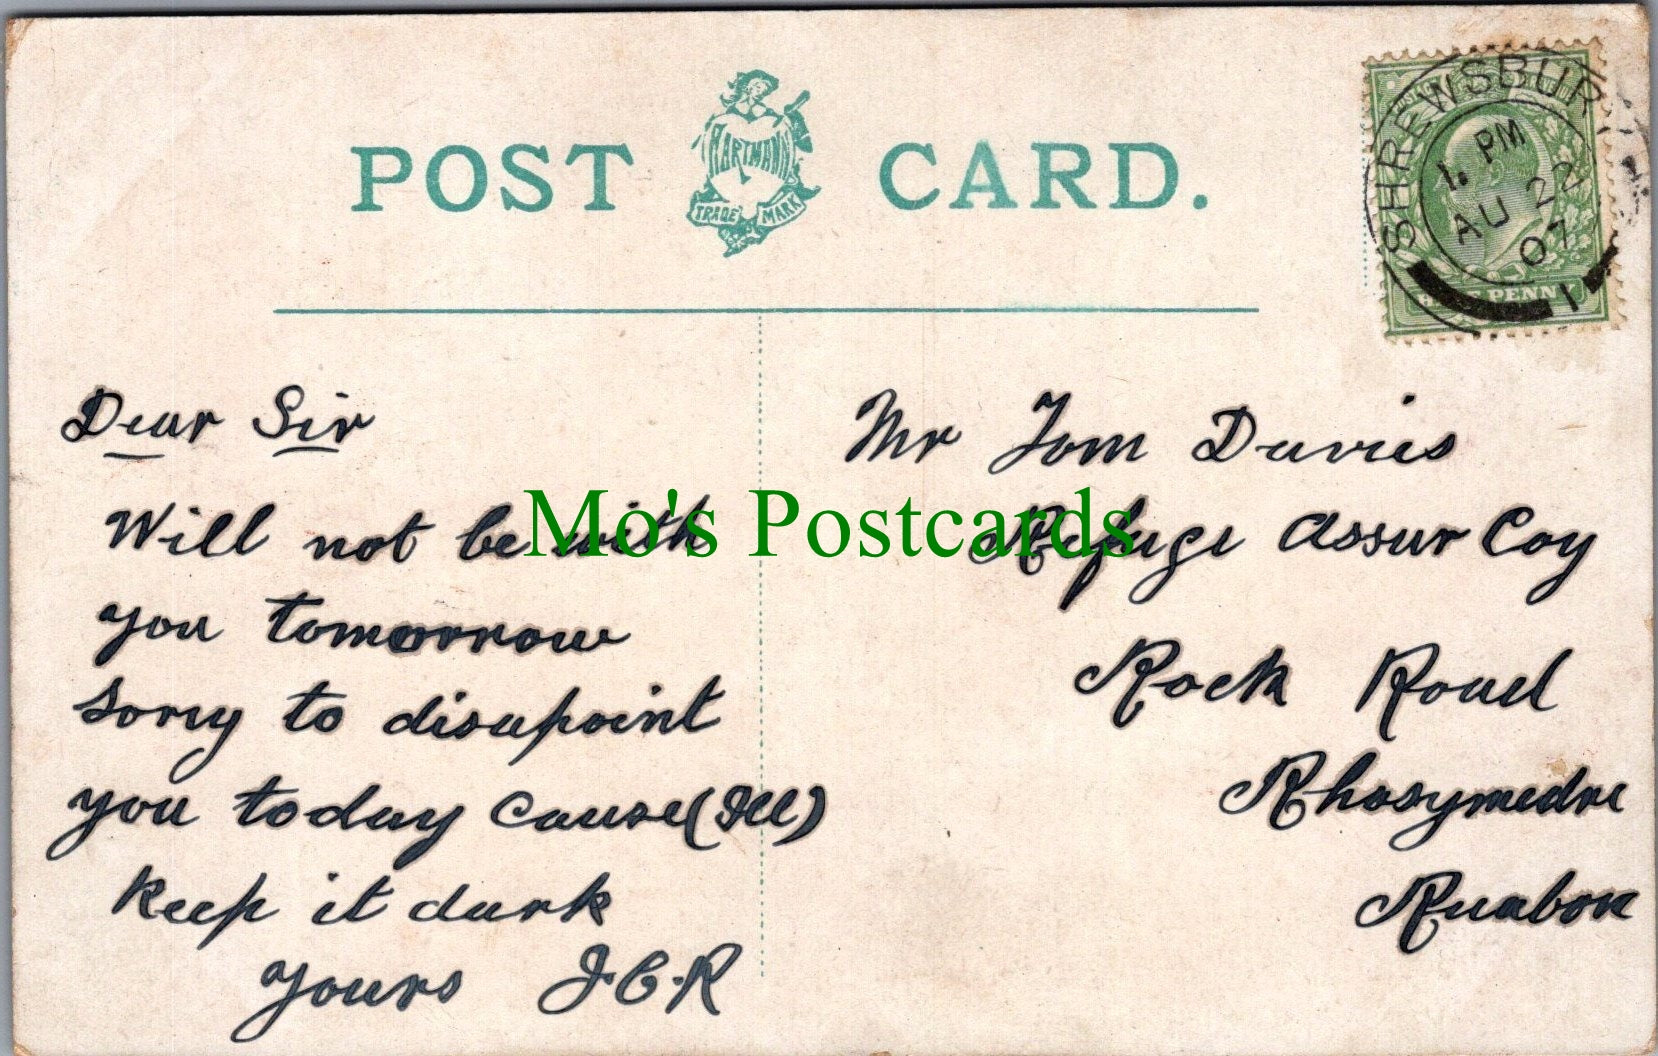 POST CARD.
HARTMANN
TRADE MARK
SHREWSBURY
1. PM
AU 22
07
1
HALF PENNY
Dear Sir
Will not be with
you tomorrow
Sorry to disapoint
you today cause (Ill)
Keep it dark
Yours J.C.R
Mr Tom Davies
Refuge Assur Coy
Rock Road
Rhosymedre
Ruabon
Mo's Postcards